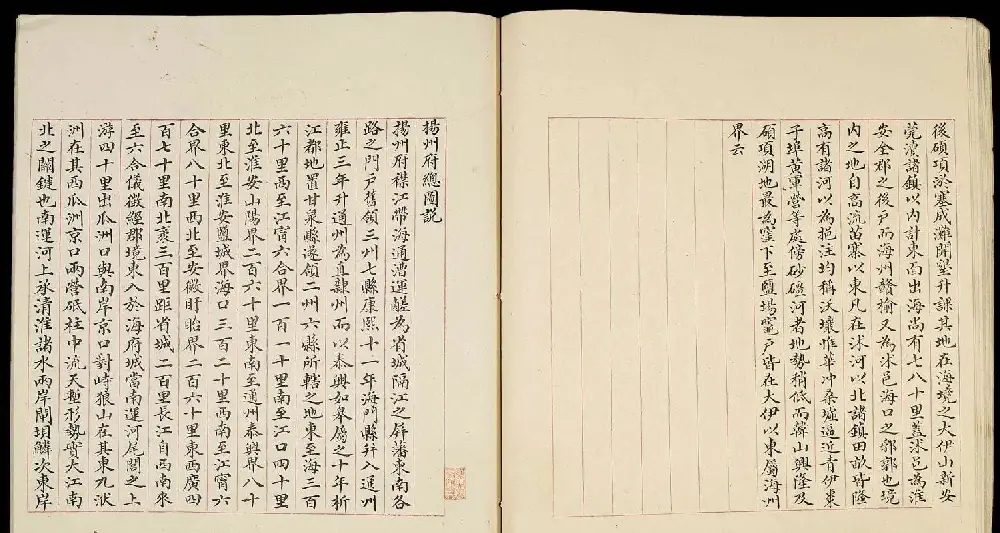 後碩項淤塞成灘開墾升課其地在海境之大伊山新安
莞瀆諸鎮以內計東西出海尚有七八十里蓋沭邑為淮
安全郡之後戶而海州贛榆又為沭邑海口之郛郭也境
內之地自高流苗寨以東凡在沭河以北諸鎮田故皆隆
高有諸河以為挹注均稱沃壤惟華沖桑墟逼近青伊東
于埠黃軍營等處傍砂礓河者地勢稍低而韓山興隆及
碩項湖地最為窪下至鹽場竈戶皆在大伊以東屬海州
界云
揚州府總圖說
揚州府襟江帶海通漕運鹺為省城隔江之屏藩東南各
路之門戶舊領三州七縣康熙十一年海門縣并入通州
雍正三年升通州為直隸州而以泰興如皋屬之十年析
江都地置甘泉縣遂領二州六縣所轄之地東至海三百
六十里西至江甯六合界一百一十里南至江口四十里
北至淮安山陽界二百六十里東南至通州泰興界八十
里東北至淮安鹽城界海口三百二十里西南至江甯六
合界八十里西北至安徽盱眙界二百六十里東西廣四
百七十里南北袤三百里距省城二百里長江自西南來
至六合儀徵經郡境東入於海府城當南運河尾閭之上
游四十里出瓜洲口與南岸京口對峙狼山在其東九洑
洲在其西瓜洲京口兩營砥柱中流天塹形勢實大江南
北之關鍵也南運河上承清淮諸水兩岸閘壩鱗次東岸